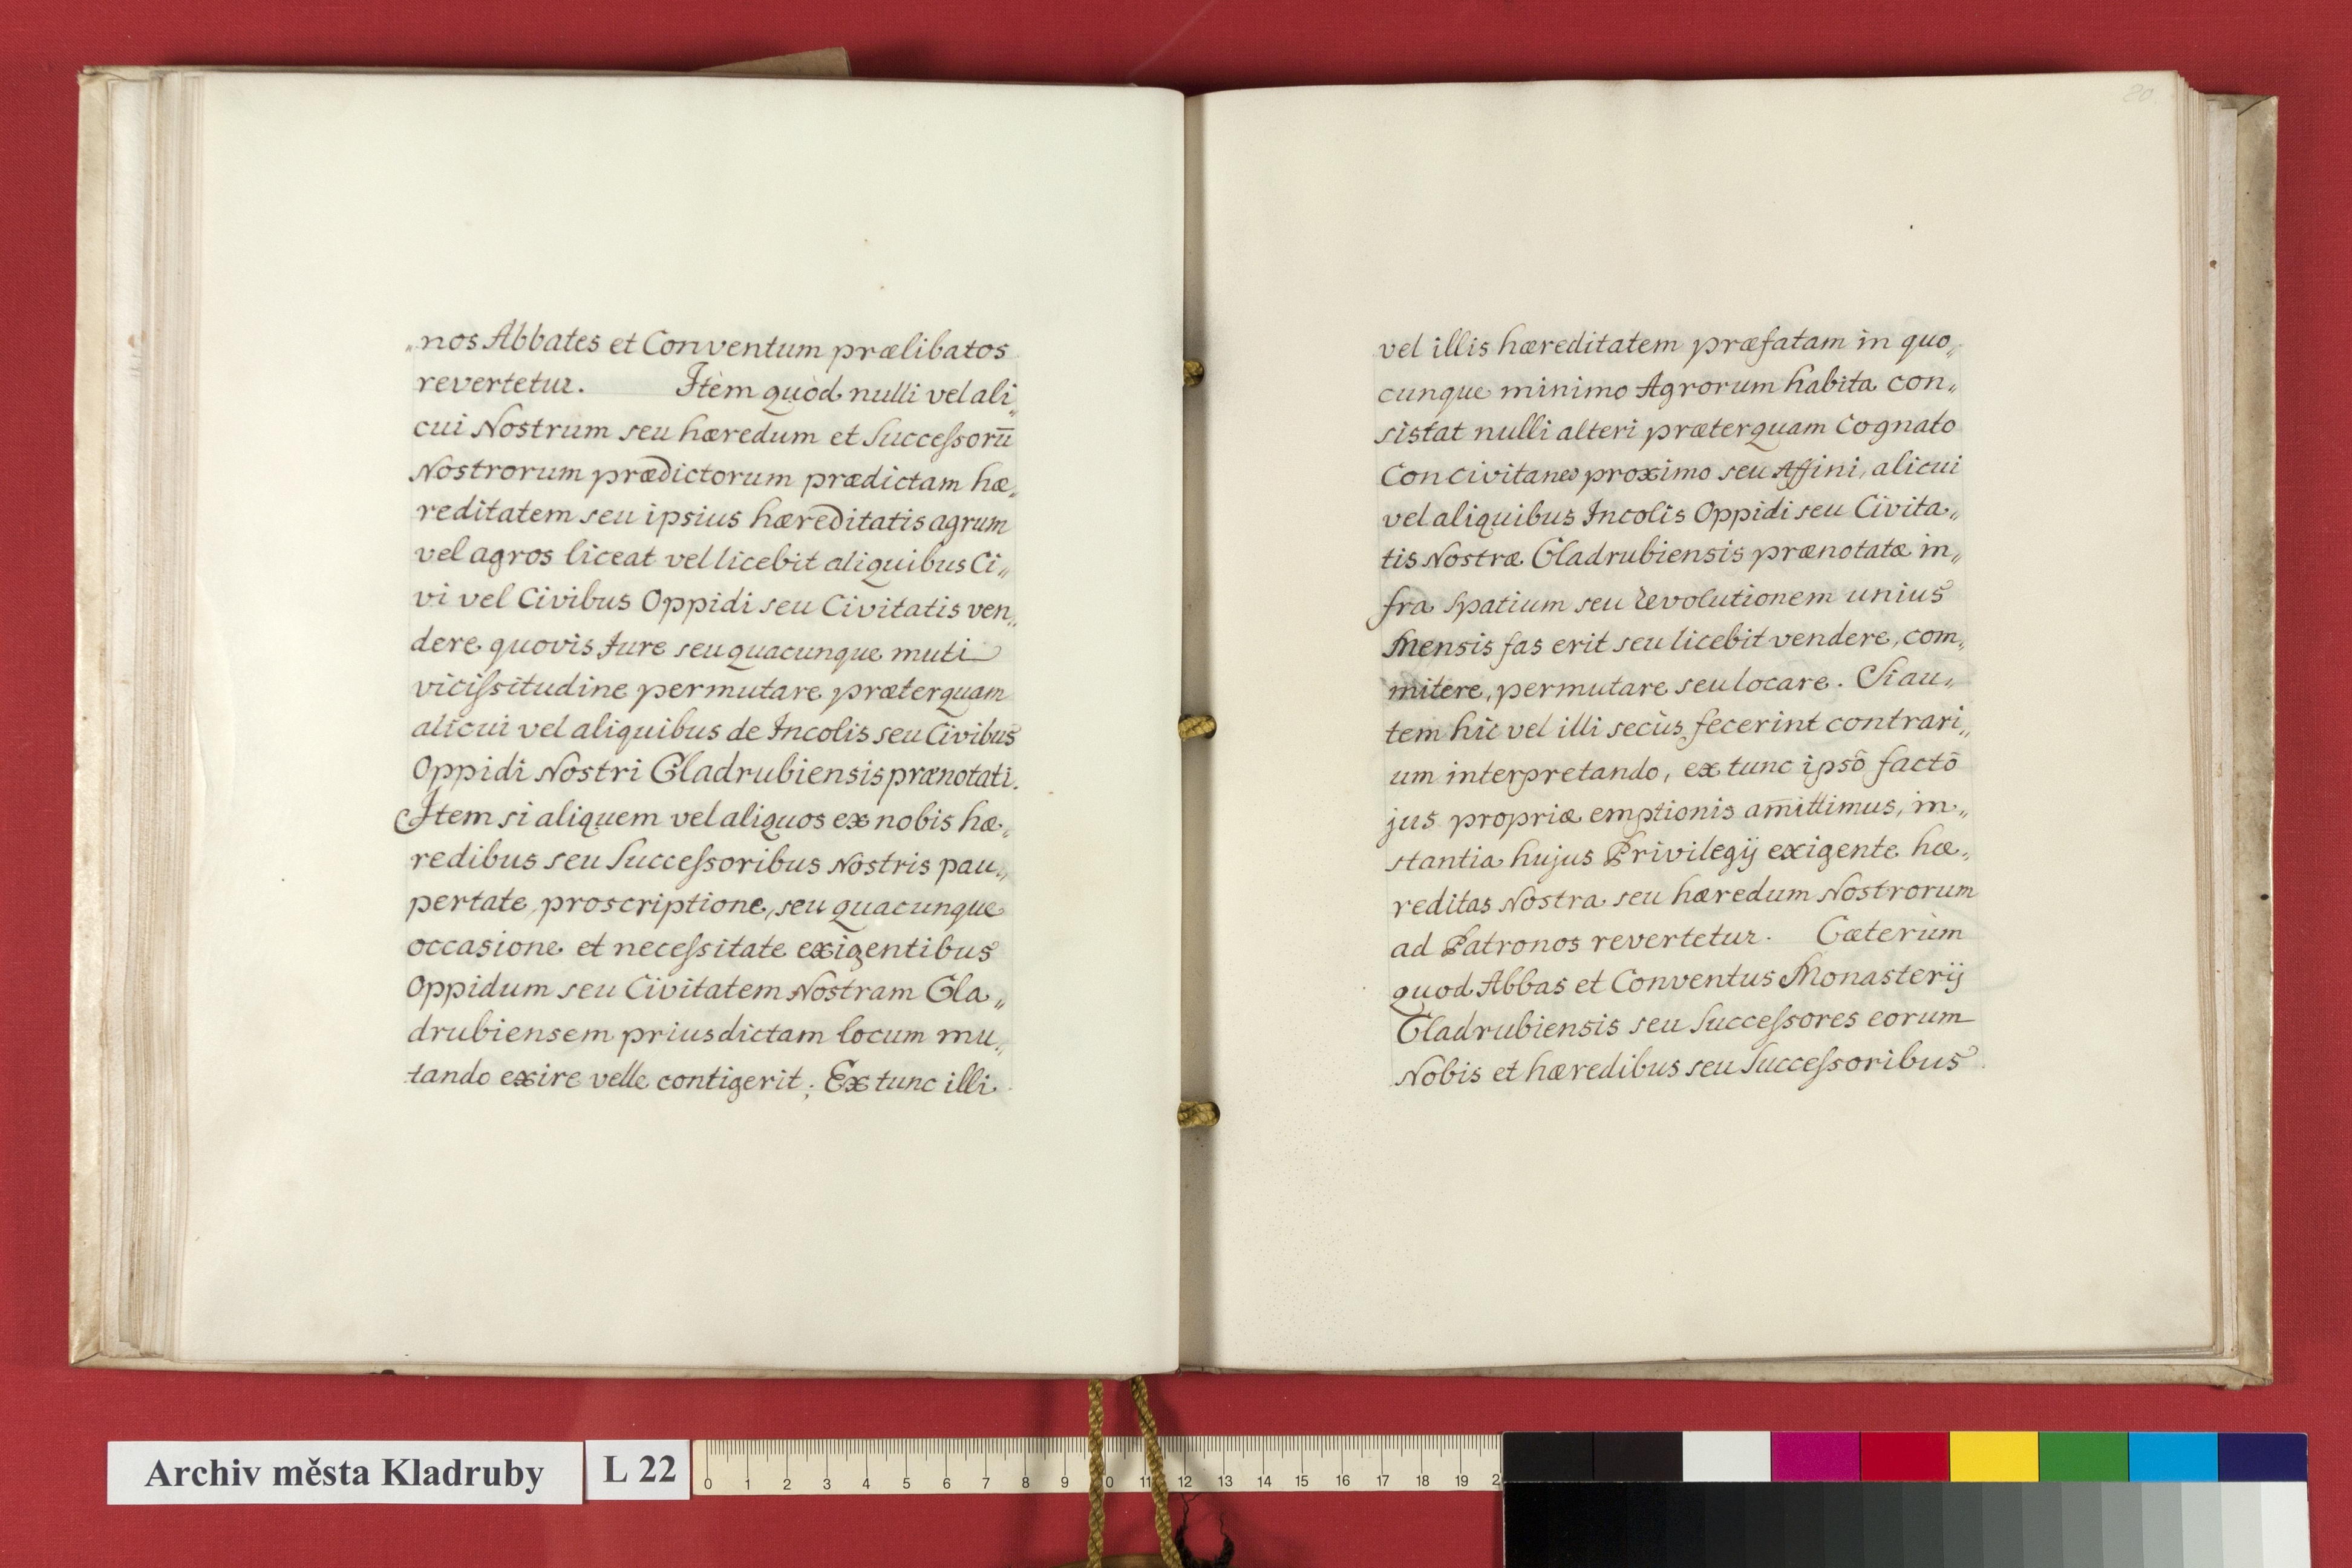 „nos Abbates et Conventum prælibatos
revertetur. Itèm quòd nulli vel ali„
cui Nostrum seu hæredum et Succeſsorū
Nostrorum prædictorum prædictam hæ„
reditatem seu ipsius hæreditatis agrum
vel agros liceat vel licebit aliquibus Ci„
vi vel Civibus Oppidi seu Civitatis ven„
dere quovis Iure seu quacunque muti
viciſsitudine permutare præterquam
alicui vel aliquibus de Incolis seu Civibus
Oppidi Nostri Cladrubiensis prænotati.
Item si aliquem vel aliquos ex nobis hæ„
redibus seu Succeſsoribus Nostris pau„
pertate, proscriptione, seu quacunque
occasione et neceſsitate exigentibus
Oppidum seu Civitatem Nostram Cla„
drubiensem priusdictam locum mu„
tando exire velle contigerit; Ex tunc illi
80.
vel illis hæreditatem præfatam in quo„
cunque minimo Agrorum habita con„
sistat nulli alteri præterquam Cognato
Concivitaneo proximo seu Affini, alicui
vel aliquibus Incolis Oppidi seu Civita„
tis Nostræ Cladrubiensis prænotatæ in„
fra Spatium seu revolutionem unius
Mensis fas erit seu licebit vendere, com„
mitere, permutare seu locare. Si au„
tem hic vel illi secùs fecerint contrari„
um interpretando, ex tunc ipsô factô
jus propriæ emptionis amittimus, in„
stantia hujus Privilegij exigente hæ„
reditas Nostra seu hæredum Nostrorum
ad Patronos revertetur. Cæterùm
quod Abbas et Conventus Monasterij
Cladrubiensis seu Succeſsores eorum
Nobis et hæredibus seu Succeſsoribus
Archiv města Kladruby L 22
0 1 2 3 4 5 6 7 8 9 10 11 12 13 14 15 16 17 18 19 2